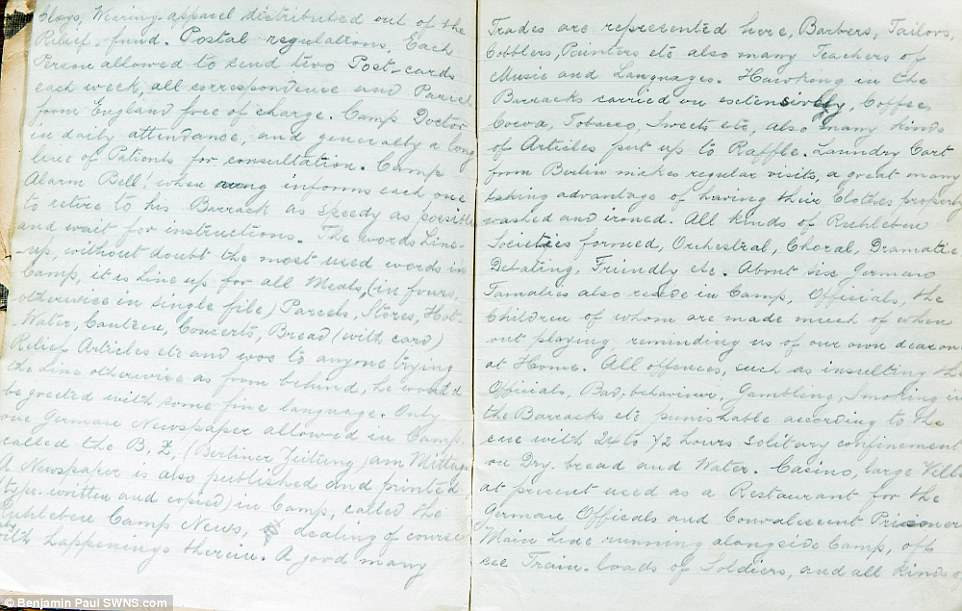 Clogs, Wearing-apparel distributed out of the
Relief-fund. Postal regulations, Each
Person allowed to send two Post-cards
each week, all correspondence and Parcels
from England free of charge. Camp Doctor
in daily attendance, and generally a long
line of Patients for consultation. Camp
Alarm Bell! when rung informs each one
to retire to his Barrack as speedy as possible
and wait for instructions. The words Line-
-up, without doubt the most used words in
Camp, it is Line up for all Meals, (in fours,
otherwise in single file) Parcels, Stores, Hot-
Water, Canteen, Concerts, Bread (with card)
Relief Articles etc and woe to anyone trying
the Line otherwise as from behind, he would
be greeted with some fine language. Only
one German Newspaper allowed in Camp,
called the B.Z, (Berliner Zeitung) am Mittag.
A Newspaper is also published and printed
(type-written and copied) in Camp, called the
Ruhleben Camp News, dealing of course
with happenings therein. A good many
Trades are represented here, Barbers, Tailors,
Cobblers, Painters etc also many Teachers of
Music and Languages. Hawking in the
Barracks carried on extensively, Coffee,
Cocoa, Tobacco, Sweets etc, also many kinds
of Articles put up to Raffle. Laundry Cart
from Berlin makes regular visits, a great many
taking advantage of having their Clothes properly
washed and ironed. All kinds of Ruhleben
Societies formed, Orchestral, Choral, Dramatic
Debating, Friendly etc. About six German
Families also reside in Camp, Officials, the
Children of whom are made much of when
out playing reminding us of our own dear ones
at Home. All offences, such as insulting the
Officials, Bad-behaviour, Gambling, Smoking in
the Barracks etc punishable according to the
one with 24 to 72 hours solitary confinement
on Dry bread and Water. Casino, large Villa
at present used as a Restaurant for the
German Officals and Convalescent Prisoners
Main Line running alongside Camp, oft
see Train-loads of Soldiers, and all kinds of
© Benjamin Paul SWNS.com